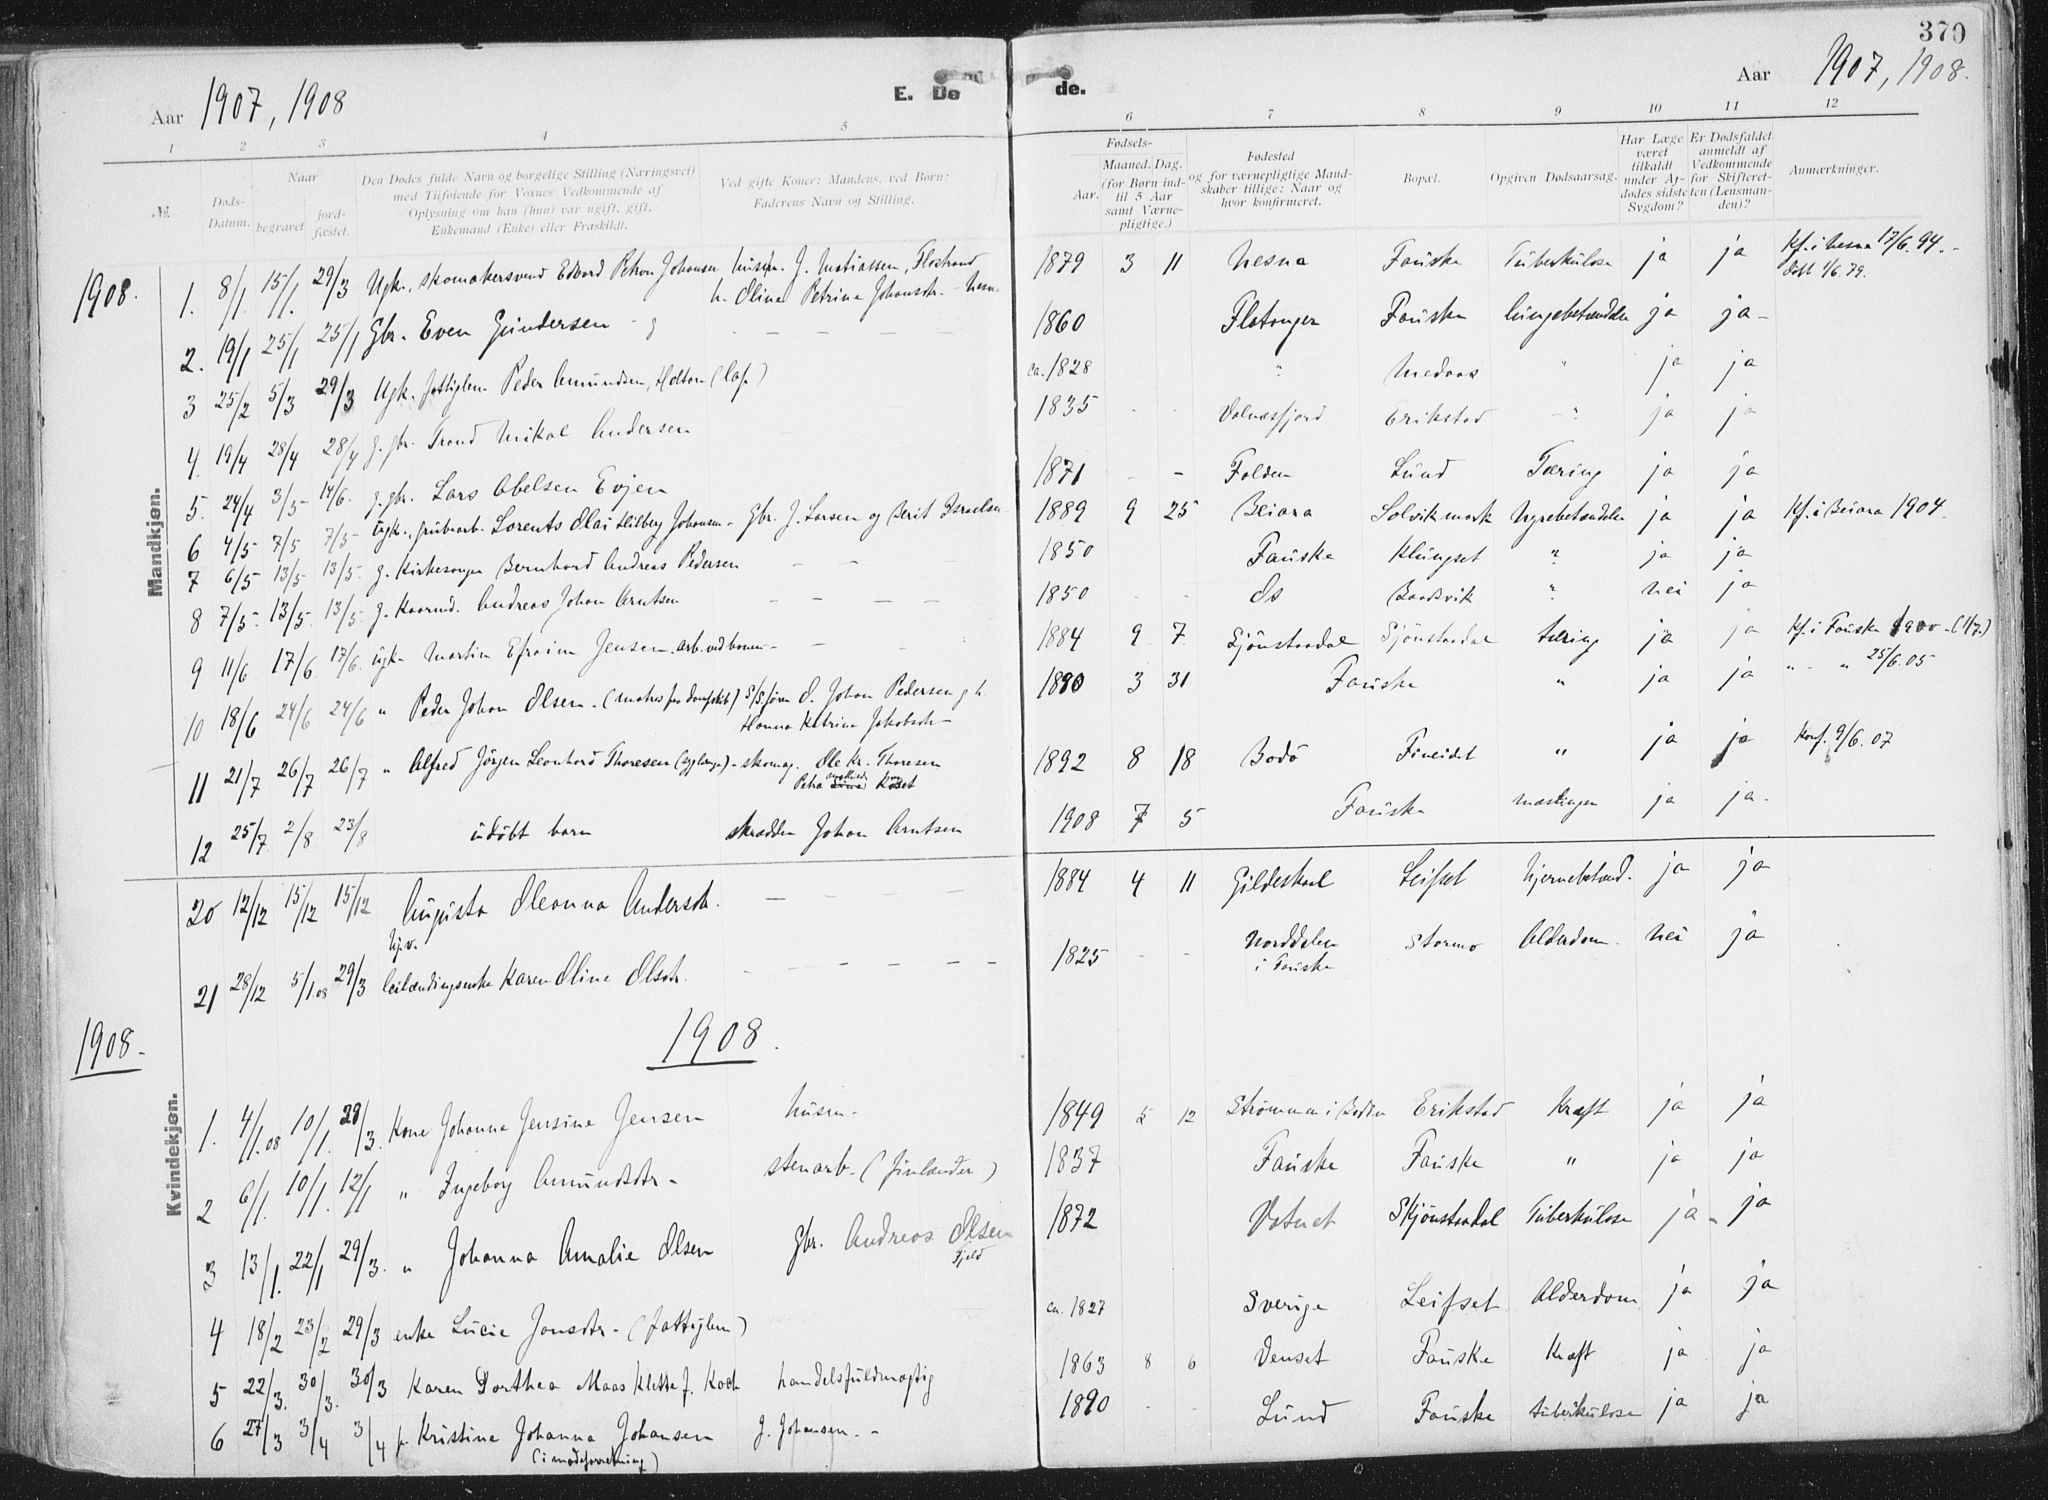 370
Aar 1907, 1908
E. Dø de.
Aar 1907, 1908.
1 2 3 4 5 6 7 8 9 10 11 12
No.
Døds-Datum.
Naar
begravet
jord-fæstet.
Den Dødes fulde Navn og borgelige Stilling (Næringsvei)
med Tilføiende for Voxnes Vedkommende af
Oplysning om han (hun) var ugift, gift,
Enkemand (Enke) eller Fraskildt.
Ved gifte Koner: Mandens, ved Børn:
Faderens Navn og Stilling.
Fødsels-
Aar. Maaned. Dag.
(for Børn ind-
til 5 Aar
samt Værne-
pligtige.)
Fødested
og for værnepligtige Mand-
skaber tillige: Naar og
hvor konfirmeret.
Bopæl.
Opgiven Dødsaarsag.
Har Læge
været
tilkaldt
under Af-
dødes sidste
Sygdom?
Er Dødsfaldet
anmeldt af
Vedkommende
for Skifteret-
ten (Lensman-
den)?
Anmærkninger.
Mandkjøn.
1908.
1. 8/1. 15/1. 29/3 Ugk. skomakersvend Edvard Petron Johansen husm. J. Matiassen, Flostrand 1879 3 11 Nesna Fauske Tuberkulose ja ja Kf. i Nesna 17/6.94.
h. Oline Petrina Johansdr. - Nesna døbt 1/6.79.
2. 19/1 25/1 25/1 Gbr. Even Gundersen - g 1860 Flatanger Fauske lungebetændelse ja ja -
3 25/2 5/3 29/3 Ugk. fattiglem Peder Amundsen, Holton (lap) ca. 1828 " Medaas " ja ja
4. 19/4 28/4 28/4 g. gbr. Trond Mikal Andersen 1835 - - Valnesfjord Erikstad - " ja ja
5. 24/4 3/5 14/6. g. gbr. Lars Abelsen Evjen 1871 - - Folden Lund Tæring ja ja
6 4/5 7/5 7/5 - ugk., grubearb. Lorents Olai Hilberg Johansen - Gbr. J. Larsen og Berit Israelsen 1889 9 25 Beiarn Solvik mark Nyrebetændelse ja ja Kf. i Beiarn 1904.
7 6/5 13/5 13/5. g. Kirkesanger Bernhard Andreas Pedersen - - 1850 Fauske Klungset " ja ja
8 7/5. 13/5. 13/5. g. Kaarmd. Andreas Johan Arntsen - - - - 1850 - - Os Baadsvik " nei ja
9 11/6 17/6 17/6. ugk. Martin Efraim Jensen. arb. ved banen - - - 1884 9 7. Sjönstaadal Sjönstaadal tæring ja ja Kf. i Fauske 1900 - (1/7.)
10 18/6 24/6 24/6 " Peder Johan Olsen. (matros fra dampskib) S/S Jören O. Johan Pedersen g. h. 1890 3 31 Fauske " ja ja " - " 25/6.05
Hanna Katrine Jakobsdr -
11 21/7 26/7 26/7 " Alfred Jörgen Leonhard Thoresen - skomag. Ole Kr. Thoresen 1892 8 18 Bodö Fineidet " ja ja Konf. 9/6.07
Petra Koset
12 25/7 2/8 23/8 udöbt barn skrædder Johan Arntsen 1908 7 5 Fauske mæslinger ja ja.
20 12/12 15/12 15/12 Augusta Oleanna Andersdr. - - - 1884 4 11 Gildeskaal Leifset hjernebetænd. ja ja
21 28/12 5/1.08 29/3 leilændingsenke Karen Oline Olsdr. - - - - - - 1825 - - Norddalen Stormo Alderdom. nei ja
i Fauske
1908. 1908.
Kvindekjøn.
1. 4/1.08 10/1. 29/3. Kone Johanna Jensine Jensen husm. 1849 5 12 Strömmen i Bodin Erikstad Kræft ja ja
2 6/1. 10/1. 12/1 " Ingeborg Amundsdr. - stenarb. (finlænder) 1837 Fauske Fauske " ja ja
3 13/1. 22/1 29/3. " Johanna Amalie Olsen Gbr. Andreas Olsen 1872 Vatnet Skjönstaadal Tuberkulose ja - ja
Fjeld
4 18/2 23/2 29/3 enke Lucie Jonsdtr. - (fattiglem) ca. 1827 Sverige Leifset Alderdom ja ja
5 22/3. 30/3. 30/3 Karen Dorthea Maas Klette f. Koch handelsfuldmægtig 1863 8 6 Venset Fauske Kræft ja ja
6 27/3 3/4 3/4 p. Kristine Johanna Johansen J. Johansen. - 1890 - - Lund Fauske tuberkulose ja ja
(i modeforretning)